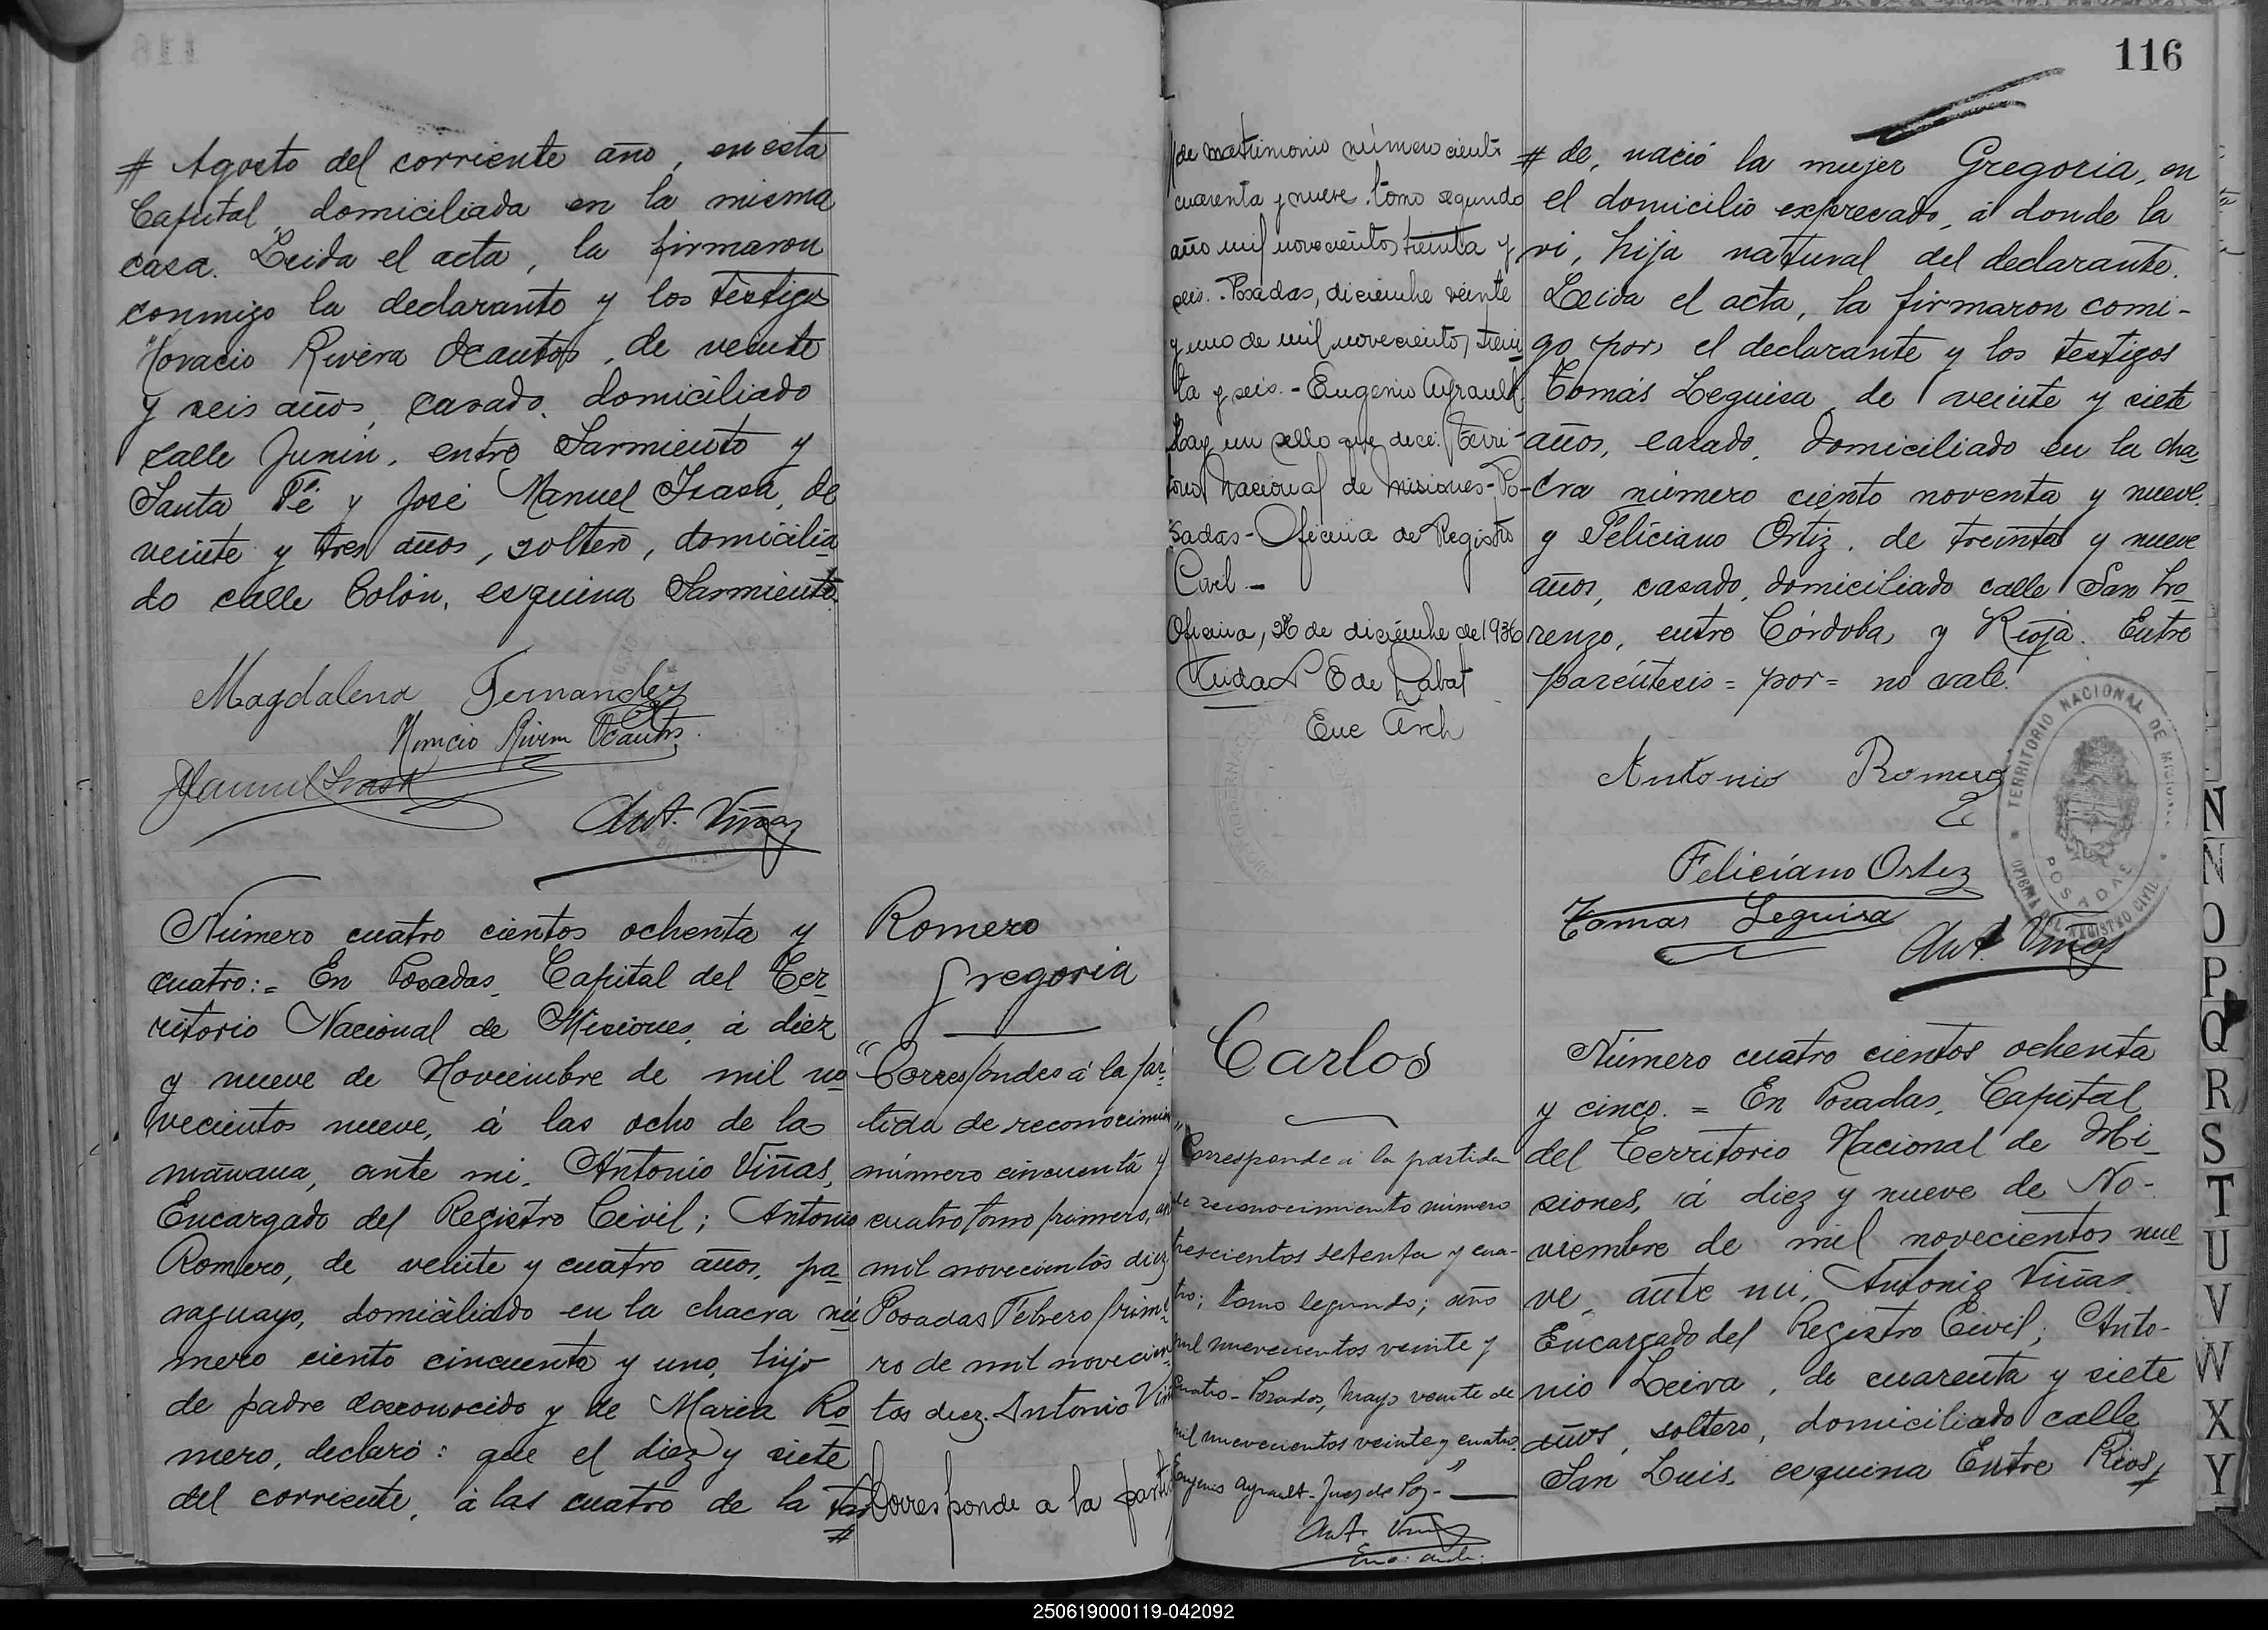 # Agosto del corriente año, en esta
Capital, domiciliada en la misma
casa. Leida el acta, la firmaron
conmigo la declarante y los testigos
Horacio Rivera Ocantos, de veinte
y seis años, casado, domiciliado
calle Junin, entre Sarmiento y
Santa Fé y José Manuel Isasa, de
veinte y tres años, soltero, domicilia
do calle Colón, esquina Sarmiento.
Magdalena Fernandez
Horacio Rivera Ocantos
Ant. Viñas
Número cuatro cientos ochenta y
cuatro:= En Posadas, Capital del Ter
ritorio Nacional de Misiones, á diez
y nueve de Noviembre de mil no
vecientos nueve, á las ocho de la
mañana, ante mi, Antonio Viñas,
Encargado del Registro Civil; Antonio
Romero, de veinte y cuatro años, pa
raguayo, domiciliado en la chacra nú
mero ciento cincuenta y uno, hijo
de padre desconocido y de Maria Ro
mero, declaró: que el diez y siete
del corriente, á las cuatro de la tar
#
Romero
Gregoria
"Correspondes á la par
tida de reconocimien
número cincuenta y
cuatro tomo primero, añ
mil novecientos diez
Posadas Febrero prime
ro de mil novecien
tos diez. Antonio Viñ
Corresponde a la parti
116
de matrimonio número ciento
cuarenta y nueve, tomo segundo
año mil novecientos treinta y
seis. - Posadas, diciembre veinte
y uno de mil novecientos trein
ta y seis. - Eugenio Ayrault.
Hay un sello que dice: Terri-
torio Nacional de Misiones - Po-
sadas - Oficina de Registro
Civil -
Oficina, 26 de diciembre de 1936
E de Labat
Enc Arch
# de, nació la mujer Gregoria, en
el domicilio expresado, á donde la
vi, hija natural del declarante.
Leida el acta, la firmaron comi-
go por, el declarante y los testigos
Tomás Leguisa, de veinte y siete
años, casado, domiciliado en la cha
cra número ciento noventa y nueve
y Feliciano Ortiz, de treinta y nueve
años, casado, domiciliado calle San Lo
renzo, entre Córdoba y Rioja. Entre
paréntesis = por = no vale.
Antonio Romero
TERRITORIO NACIONAL DE MISIONES
POSADAS
OFICINA DEL REGISTRO CIVIL
Feliciano Ortez
Tomas Leguisa
Ant. Viñas
Carlos
"Corresponde á la partida
de reconocimiento número
trescientos setenta y cua-
tro; tomo segundo; año
mil nuevecientos veinte y
cuatro - Posadas, Mayo veinte de
mil nuevecientos veinte y cuatro.
Eugenio Ayrault - Juez de Paz -"
Ant. Viñas
Enc. arch.
Número cuatro cientos ochenta
y cinco. = En Posadas, Capital
del Territorio Nacional de Mi-
siones, á diez y nueve de No-
viembre de mil novecientos nue
ve, ante mi, Antonio Viñas,
Encargado del Registro Civil; Anto-
nio Leiva, de cuarenta y siete
años, soltero, domiciliado calle
San Luis, esquina Entre Rios #
N
N
O
P
Q
R
S
T
U
V
W
X
Y
250619000119-042092